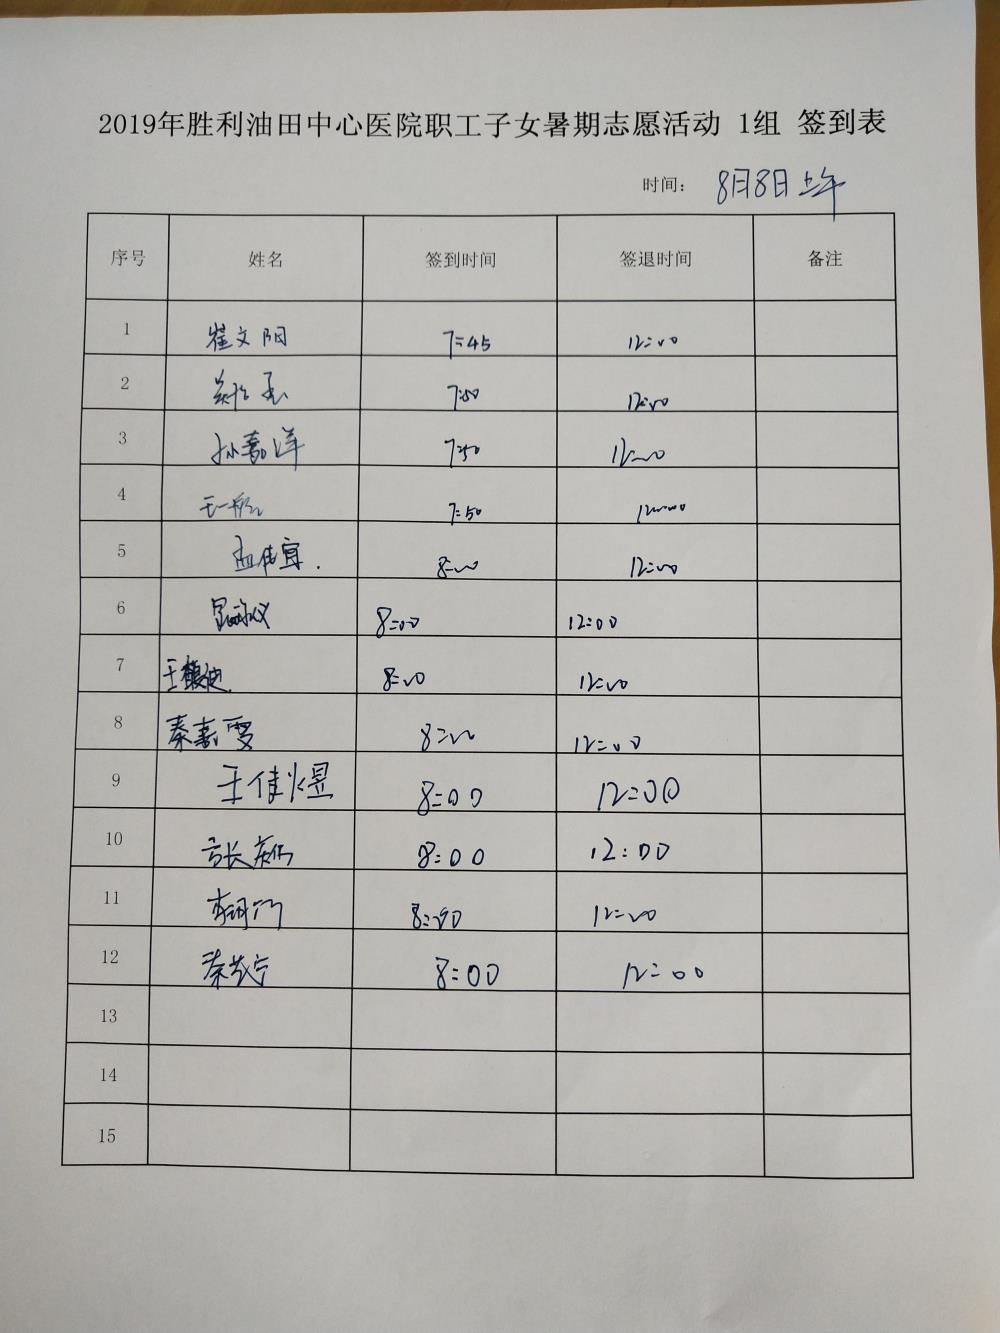 2019年胜利油田中心医院职工子女暑期志愿活动 1组 签到表
时间： 8月8日上午
序号 姓名 签到时间 签退时间 备注
1 崔文阳 7:45 12:00
2 7:50 12:00
3 孙嘉洋 7:50 12:00
4 王一 7:50 12:00
5 孟伟宜. 8:00 12:00
6 8:00 12:00
7 王 8:00 12:00
8 秦嘉雯 8:00 12:00
9 王佳煜 8:00 12:00
10 张 8:00 12:00
11 8:00 12:00
12 秦 8:00 12:00
13
14
15